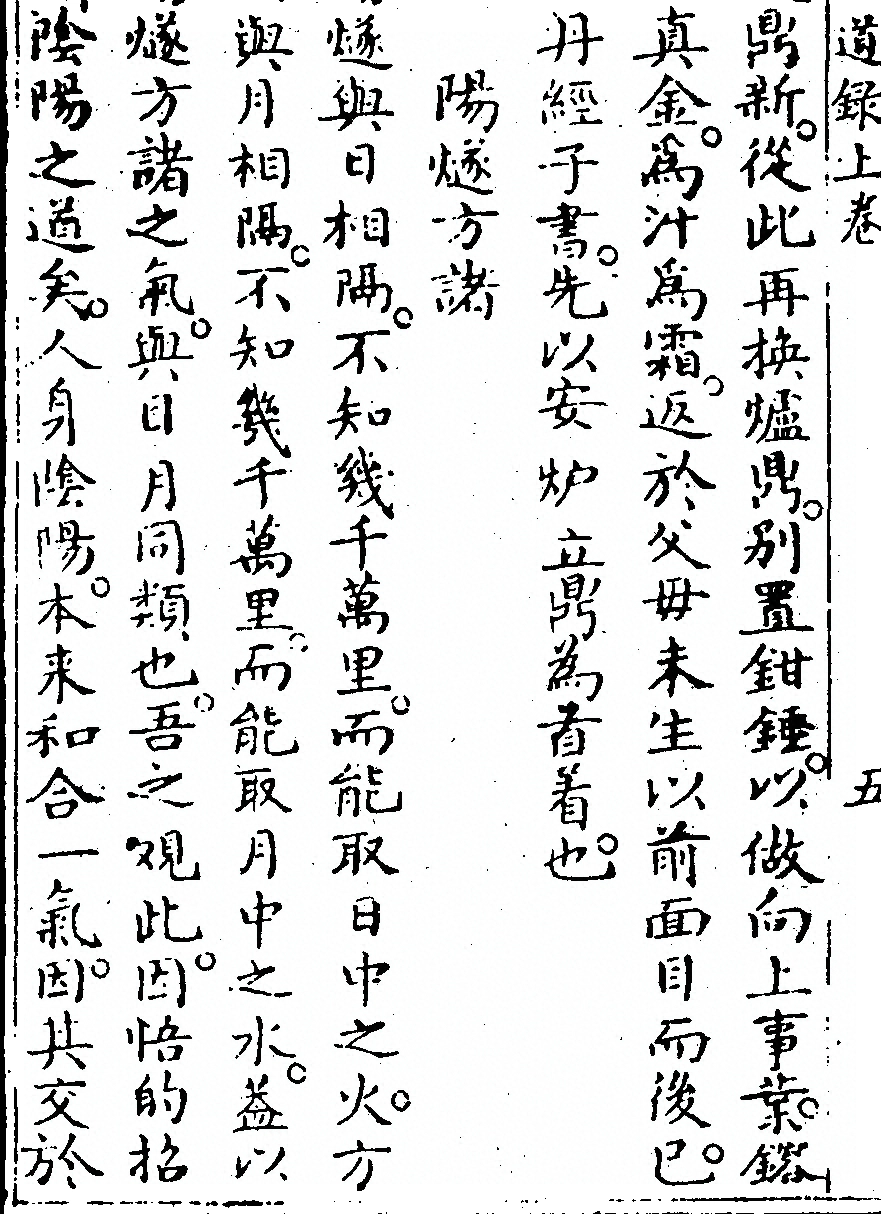 道錄上卷 五
鼎新。從此再換爐鼎。別置鉗錘。以做向上事業。鎔
真金。為汁為霜。返於父母未生以前面目而後已。
丹經子書。先以安炉立鼎為首着也。
陽燧方諸
燧與日相隔。不知幾千萬里。而能取日中之火。方
與月相隔。不知幾千萬里。而能取月中之水。葢以
燧方諸之氣。與日月同類也。吾之观此。因悟的招
陰陽之道矣。人身陰陽。本来和合一氣。因其交於